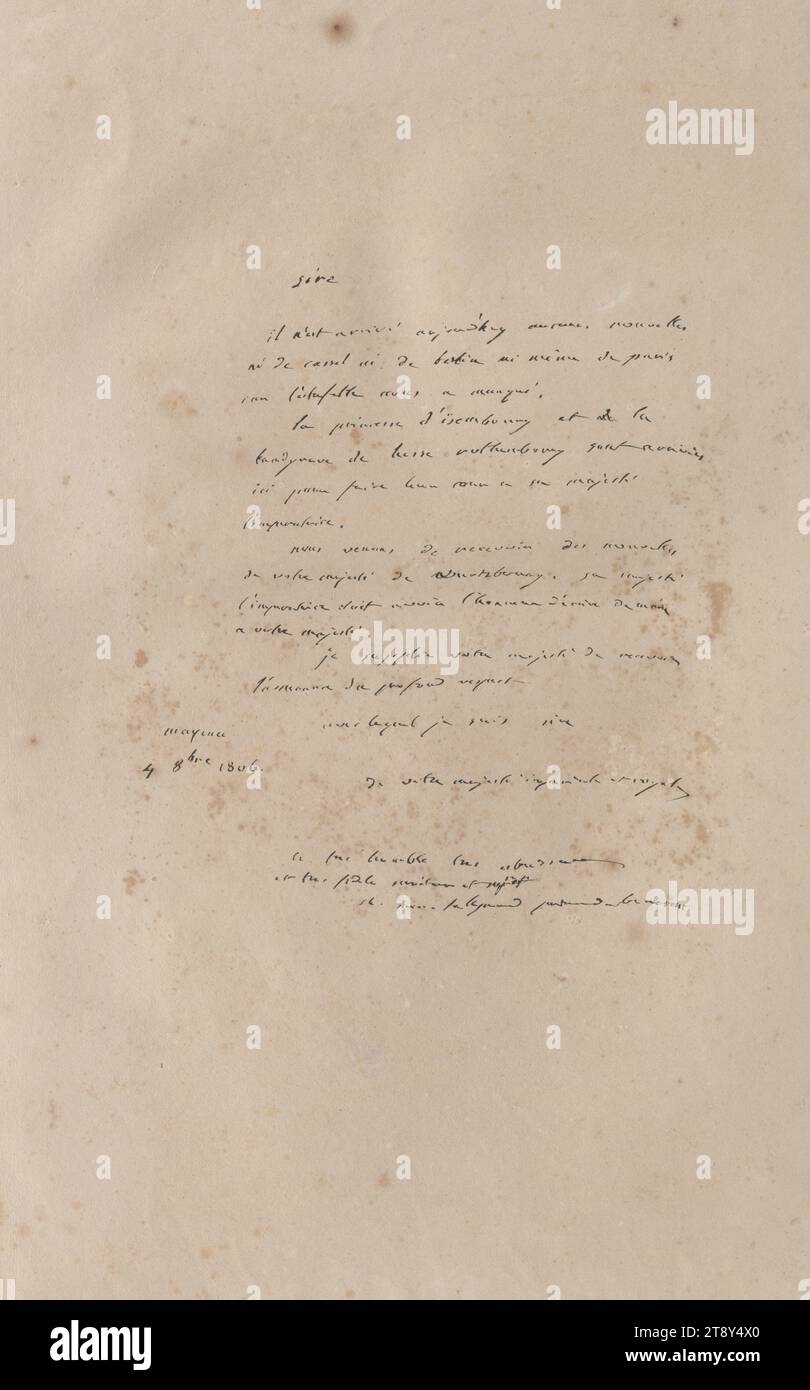 sire
il n'est arrivé aujourd'huy aucunes nouvelles
ni de cassel ni de berlin ni même de paris
car l'estafette nous a manqué.
la princesse d'isembourg et de la
landgrave de hesse rothembourg sont arrivées
ici pour faire leur cour a sa majesté
l'impératrice.
nous venons de recevoir des nouvelles
de votre majesté de Wurtzbourg. sa majesté
l'impératrice doit avoir l'honneur d'écrire demain
a votre majesté.
je supplie votre majesté de recevoir
l'hommage du profond respect
avec lequel je suis sire
mayence
4 8bre 1806.
de votre majesté impériale et royale
le tres humble tres obeissant
et tres fidele serviteur et sujet
ch. mau. talleyrand prince de benevent
alamy
a
Image ID: 2T8Y4X0
www.alamy.com